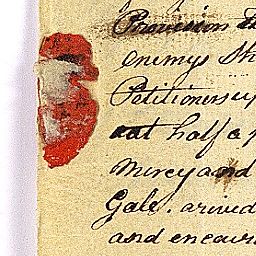 Provision
enemys Sh
Petitioners up
out half a p
Mercy and
Gale. arived
and encour